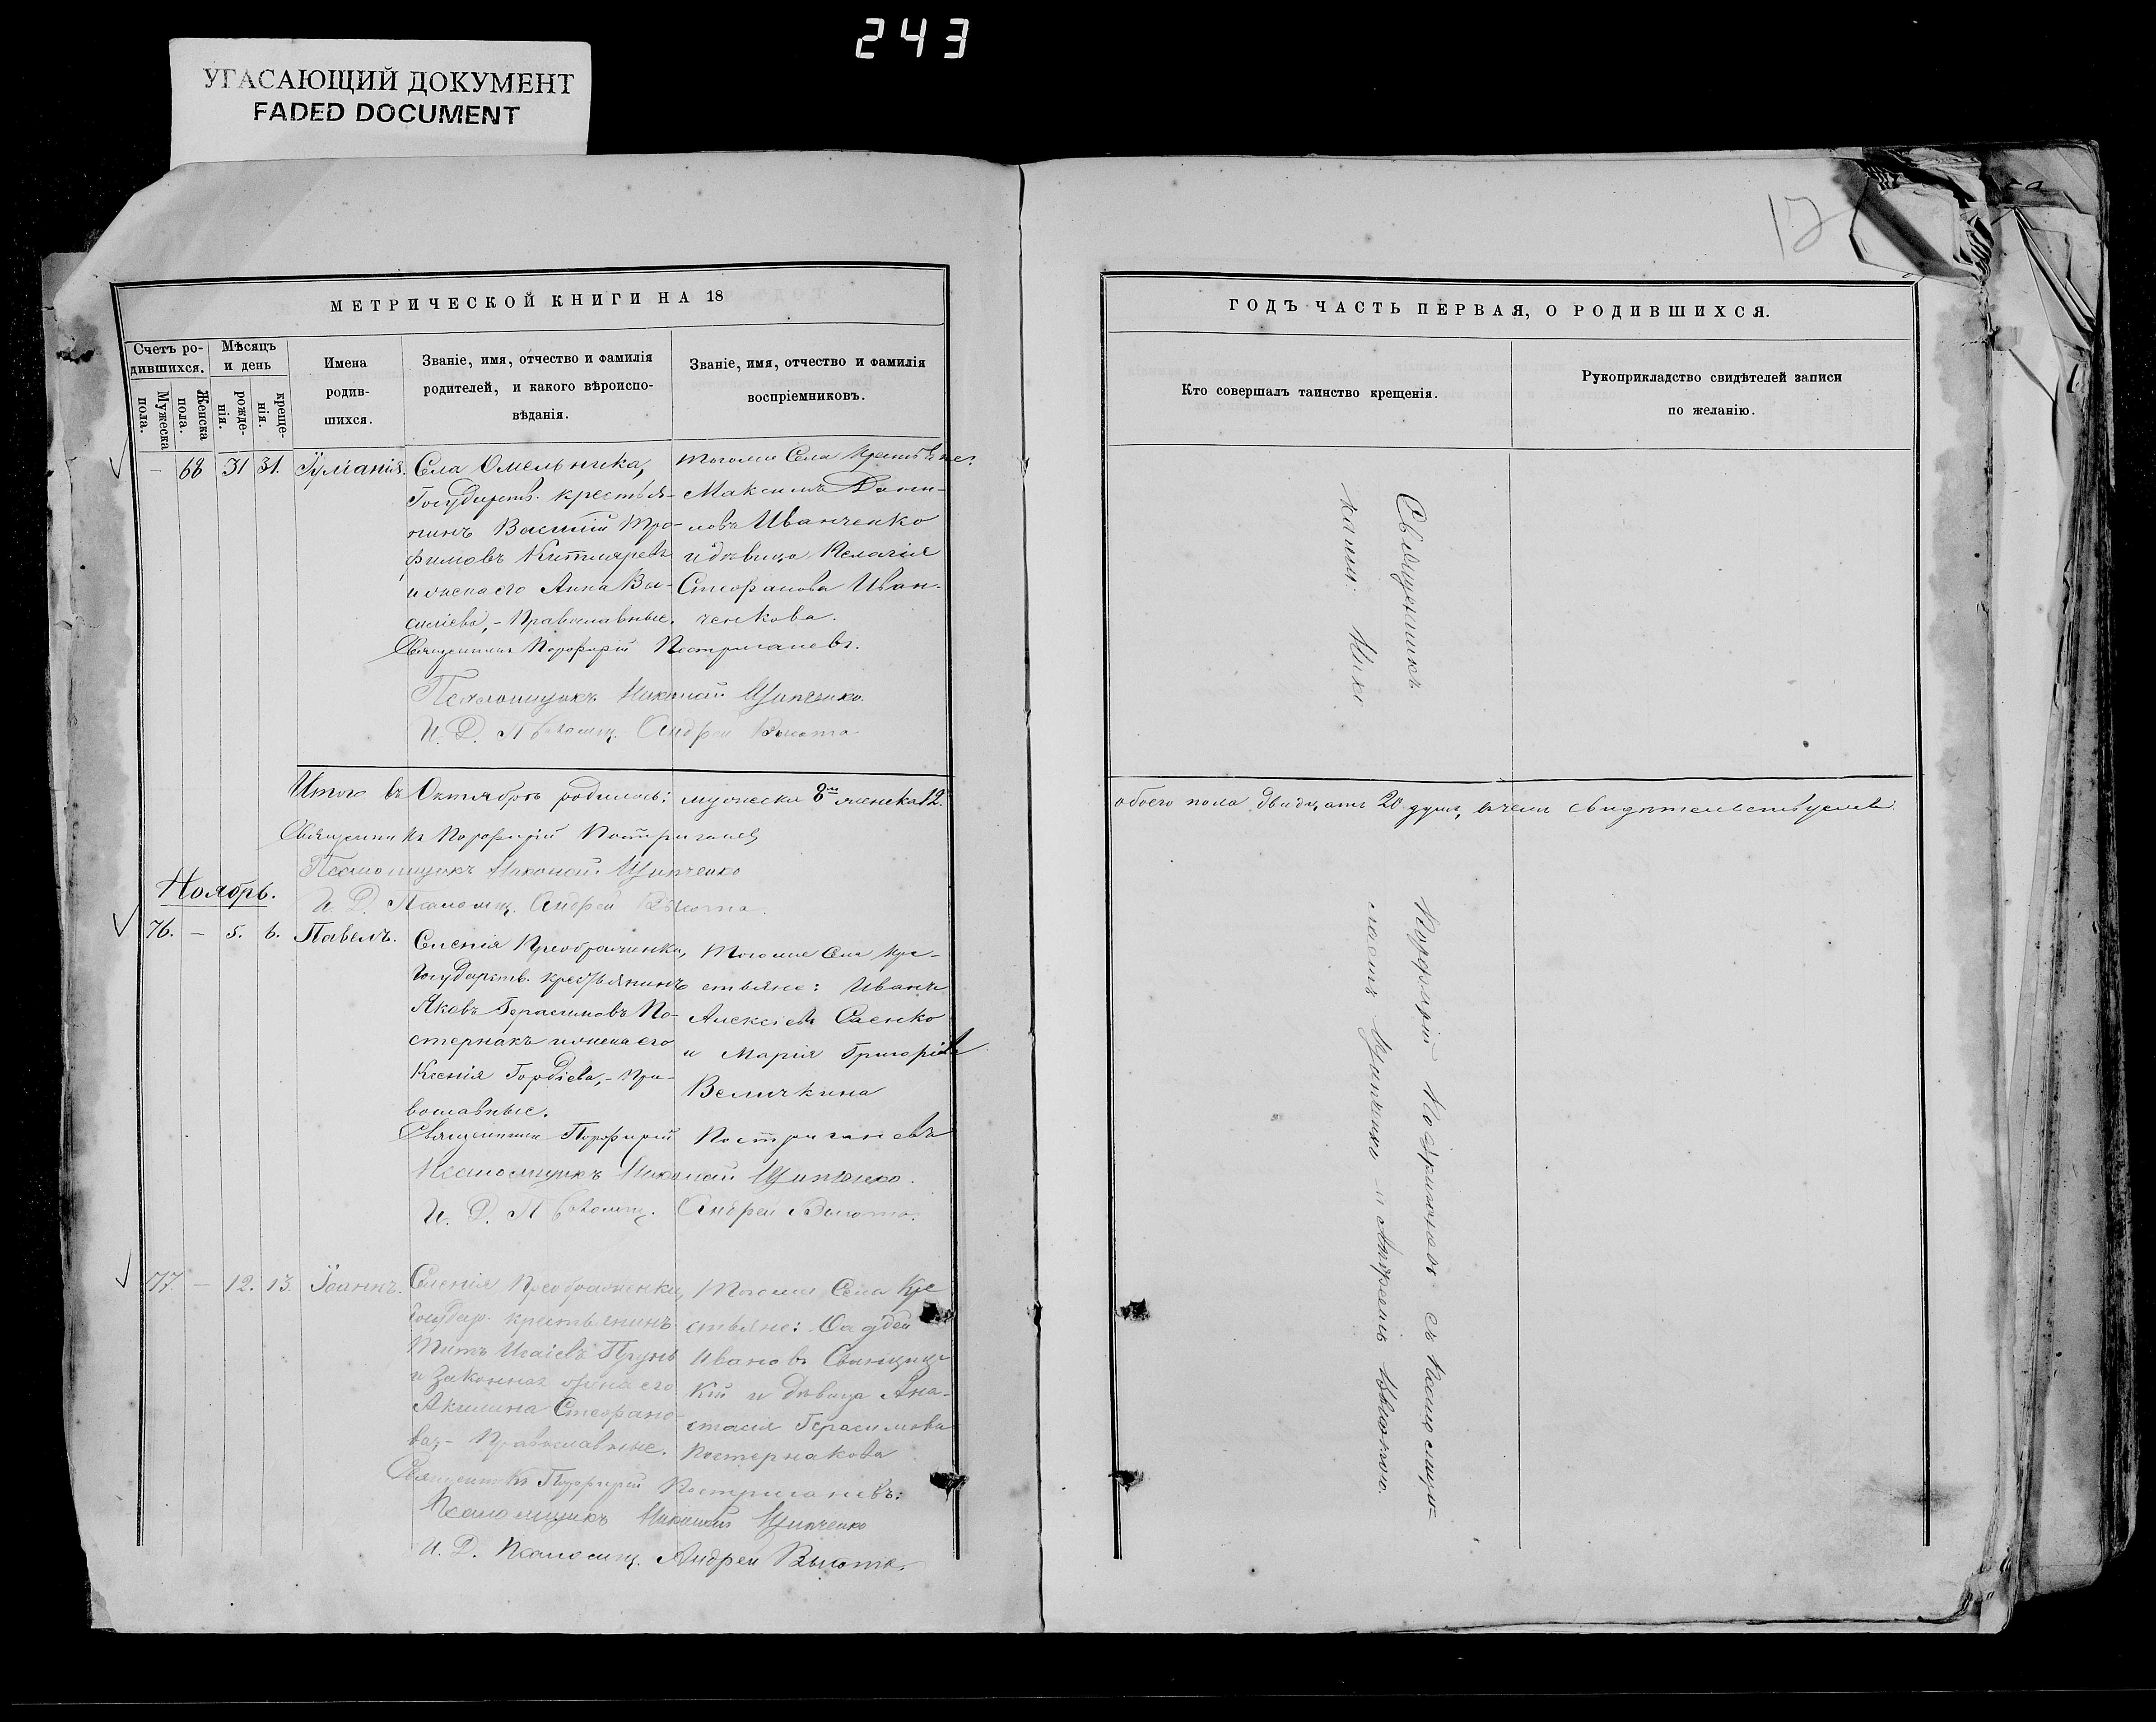 243
УГАСАЮЩИЙ ДОКУМЕНТ
FADED DOCUMENT
12
МЕТРИЧЕСКОЙ КНИГИ НА 18
Счетъ ро-
дившихся.
Мужеска
пола.
Женска
пола.
Мѣсяцъ
и день
рожде-
нія.
креще-
нія.
Имена
родив-
шихся.
Званіе, имя, отчество и фамилія
родителей, и какого вѣроиспо-
вѣданія.
Званіе, имя, отчество и фамилія
воспріемниковъ.
— 68 31 31. Іуліанія.
Села Омельника,
Государств. крестья-
нинъ Василій Тро-
фимовъ
и жена его Анна Ва-
силіева, - Православные.
Тогоже Села
Максимъ
новъ Иванченко
и дѣвица Пелагія
Стефанова Иван-
ченкова.
Священникъ Порфирій Постригачевъ.
Псаломщикъ Николай Щипченко.
И. Д. Псаломщ. Андрей
Итого въ Октябрѣ родилось: мужеска 8 женска 12.
Священникъ Порфирій Постригачевъ
Псаломщикъ Николай Щипченко
И. Д. Псаломщ. Андрей
Ноябрь.
76. — 5. 6. Павелъ.
Селенія Преображенки,
Государств. крестьянинъ
Яковъ Герасимовъ По-
стернакъ и жена его
Ксенія Гордіева, - Пра-
вославные.
Тогоже Села Кре-
стьяне: Иванъ
Алексіевъ Саенко
и Марія Григоріева
Величкина
Священникъ Порфирій Постригачевъ
Псаломщикъ Николай Щипченко.
И. Д. Псаломщ. Андрей
77. — 12. 13. Іоаннъ.
Селенія Преображенки,
Государ. крестьянинъ
Титъ Исаіевъ
и законная жена его
Акилина Стефано-
ва, - Православные.
Тогоже Села Кре
стьяне: Фаддей
Ивановъ
кій и дѣвица Ана-
стасія Герасимова
Постернакова
Священникъ Порфирій Постригачевъ:
Псаломщикъ Николай Щипченко
И. Д. Псаломщ. Андрей
ГОДЪ ЧАСТЬ ПЕРВАЯ, О РОДИВШИХСЯ.
Кто совершалъ таинство крещенія.
Рукоприкладство свидѣтелей записи
по желанію.
обоего пола двадцать 20 душъ, въ чемъ свидѣтельствуемъ
Священникъ Порфирій Постригачевъ съ Псаломщи-
ками: Нико
лаемъ Щипченко и Андреемъ